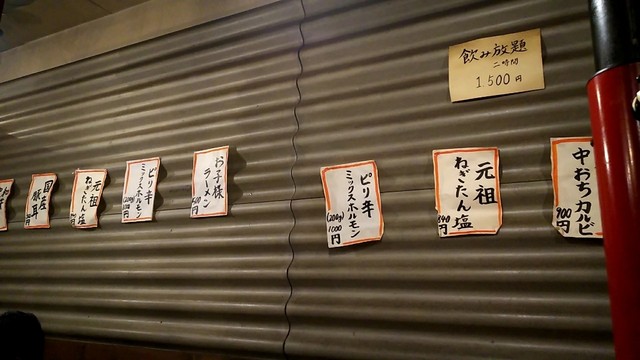 飲み放題
二時間
1500円
国産
豚耳
元祖
ねぎたん塩
ピリ辛
ミックスホルモン
お子様
ラーメン
ピリ辛
ミックスホルモン
(200g)
1000円
元祖
ねぎたん塩
840円
中おちカルビ
900円